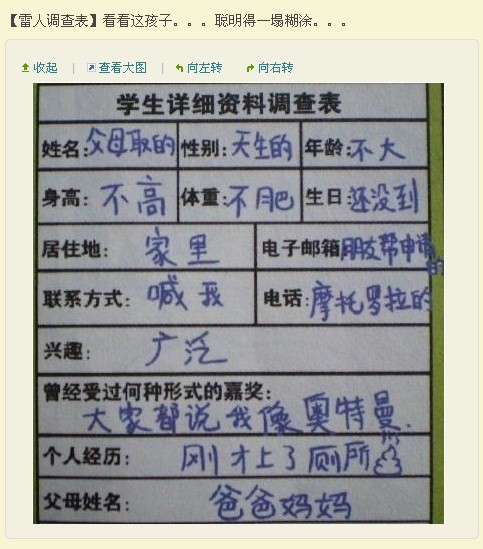 【雷人调查表】看看这孩子。。。聪明得一塌糊涂。。。
收起 | 查看大图 | 向左转 向右转
学生详细资料调查表
姓名:父母取的 性别:天生的 年龄:不大
身高: 不高 体重:不肥 生日:还没到
居住地: 家里 电子邮箱朋友帮申请的
联系方式: 喊我 电话:摩托罗拉的
兴趣: 广泛
曾经受过何种形式的嘉奖:
大家都说我像奥特曼.
个人经历: 刚才上了厕所
父母姓名: 爸爸妈妈